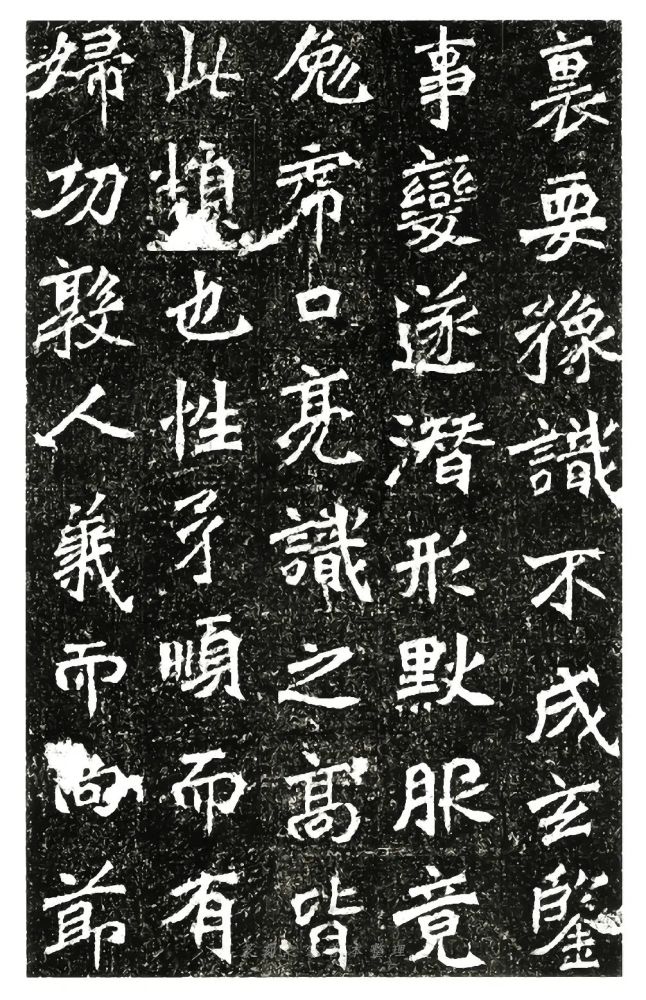 裏要豫識不成玄鑒
事變遂潛形默服竟
免虎口亮識之高皆
此類也性柔順而有
婦功敦人義而尚節
整理